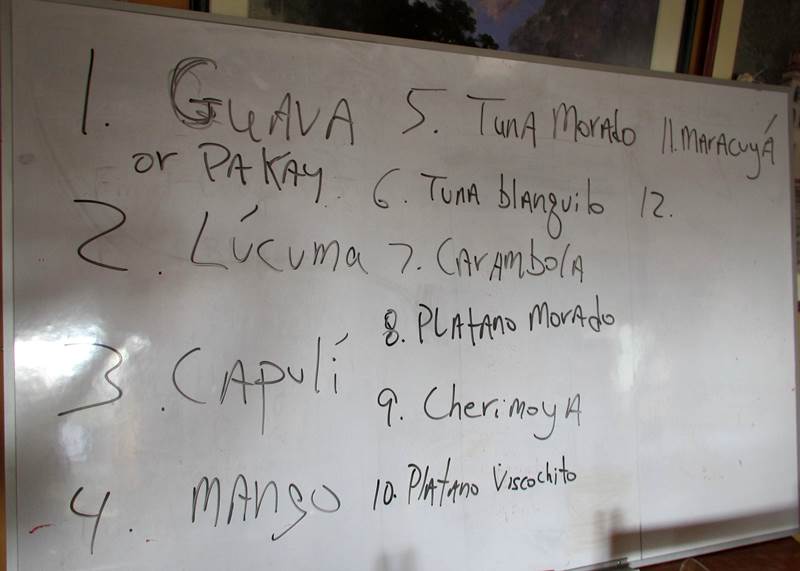 1. GUAVA
or PAKAY
2. LÚCUMA
3. CAPULÍ
4. MANGO
5. TUNA MORADO
6. TUNA blanquilo
7. CARAMBOLA
8. PLATANO MORADO
9. CherimoyA
10. PlATANO Viscochito
11. MARACUYÁ
12.